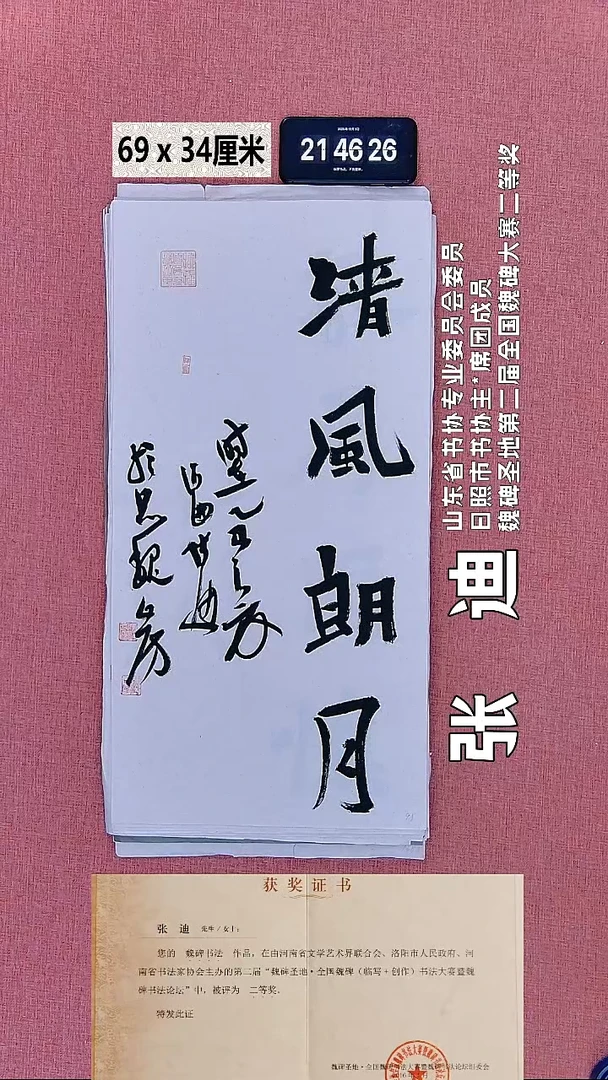 69 x 34厘米
21 46 26
清風朗月
山东省书协专业委员会委员
日照市书协主*席团成员
魏碑圣地第二届全国魏碑大赛二等奖
张 迪
获奖证书
张 迪 先生/女士:
您的 魏碑书法 作品，在由河南省文学艺术界联合会、洛阳市人民政府、河
南省书法家协会主办的第二届“魏碑圣地·全国魏碑（临写+创作）书法大赛暨魏
碑书法论坛”中，被评为 二等奖。
特发此证
魏碑圣地·全国魏碑书法大赛暨魏碑书法论坛组委会